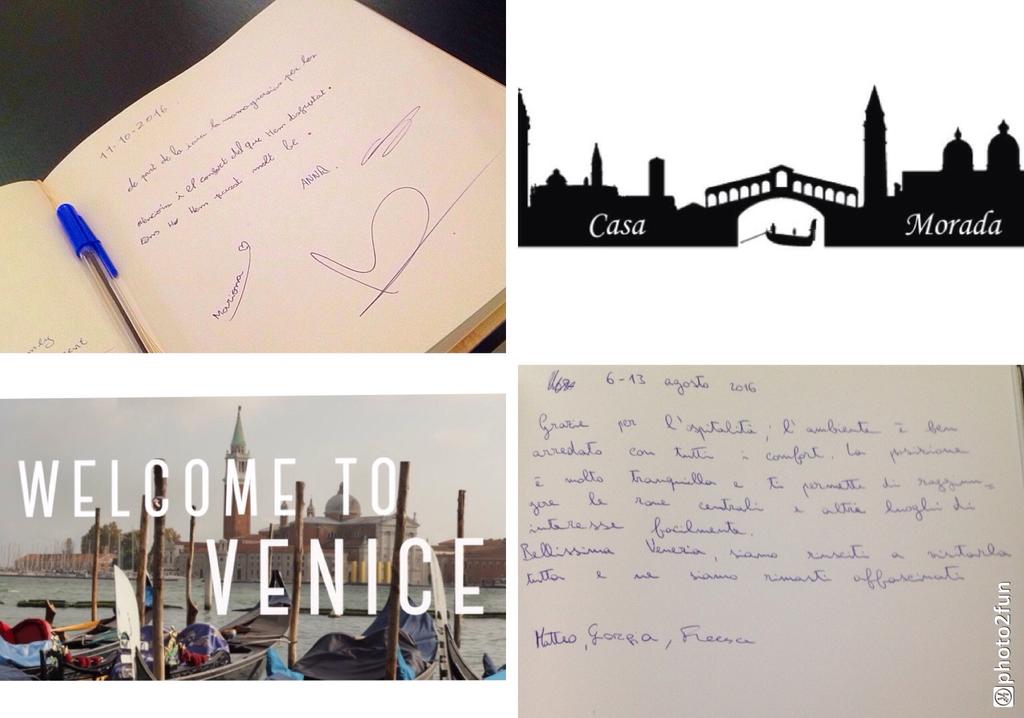 11-10-2016
de part de la
per les
atencions i el confort del que Hem disfrutat.
Ens Ho Hem passat molt bé.
ANNA.
Mariona
Casa
Morada
WELCOME TO
VENICE
6-13 agosto 2016
Grazie per l'ospitalità, l'ambiente è ben
arredato con tutti i comfort. La posizione
è molto tranquilla e ti permette di raggiun=
gere le zone centrali e altri luoghi di
interesse facilmente.
Bellissima Venezia, siamo riusciti a visitarla
tutta e ne siamo rimasti affascinati
Matteo, Giorgia,
photo2fun